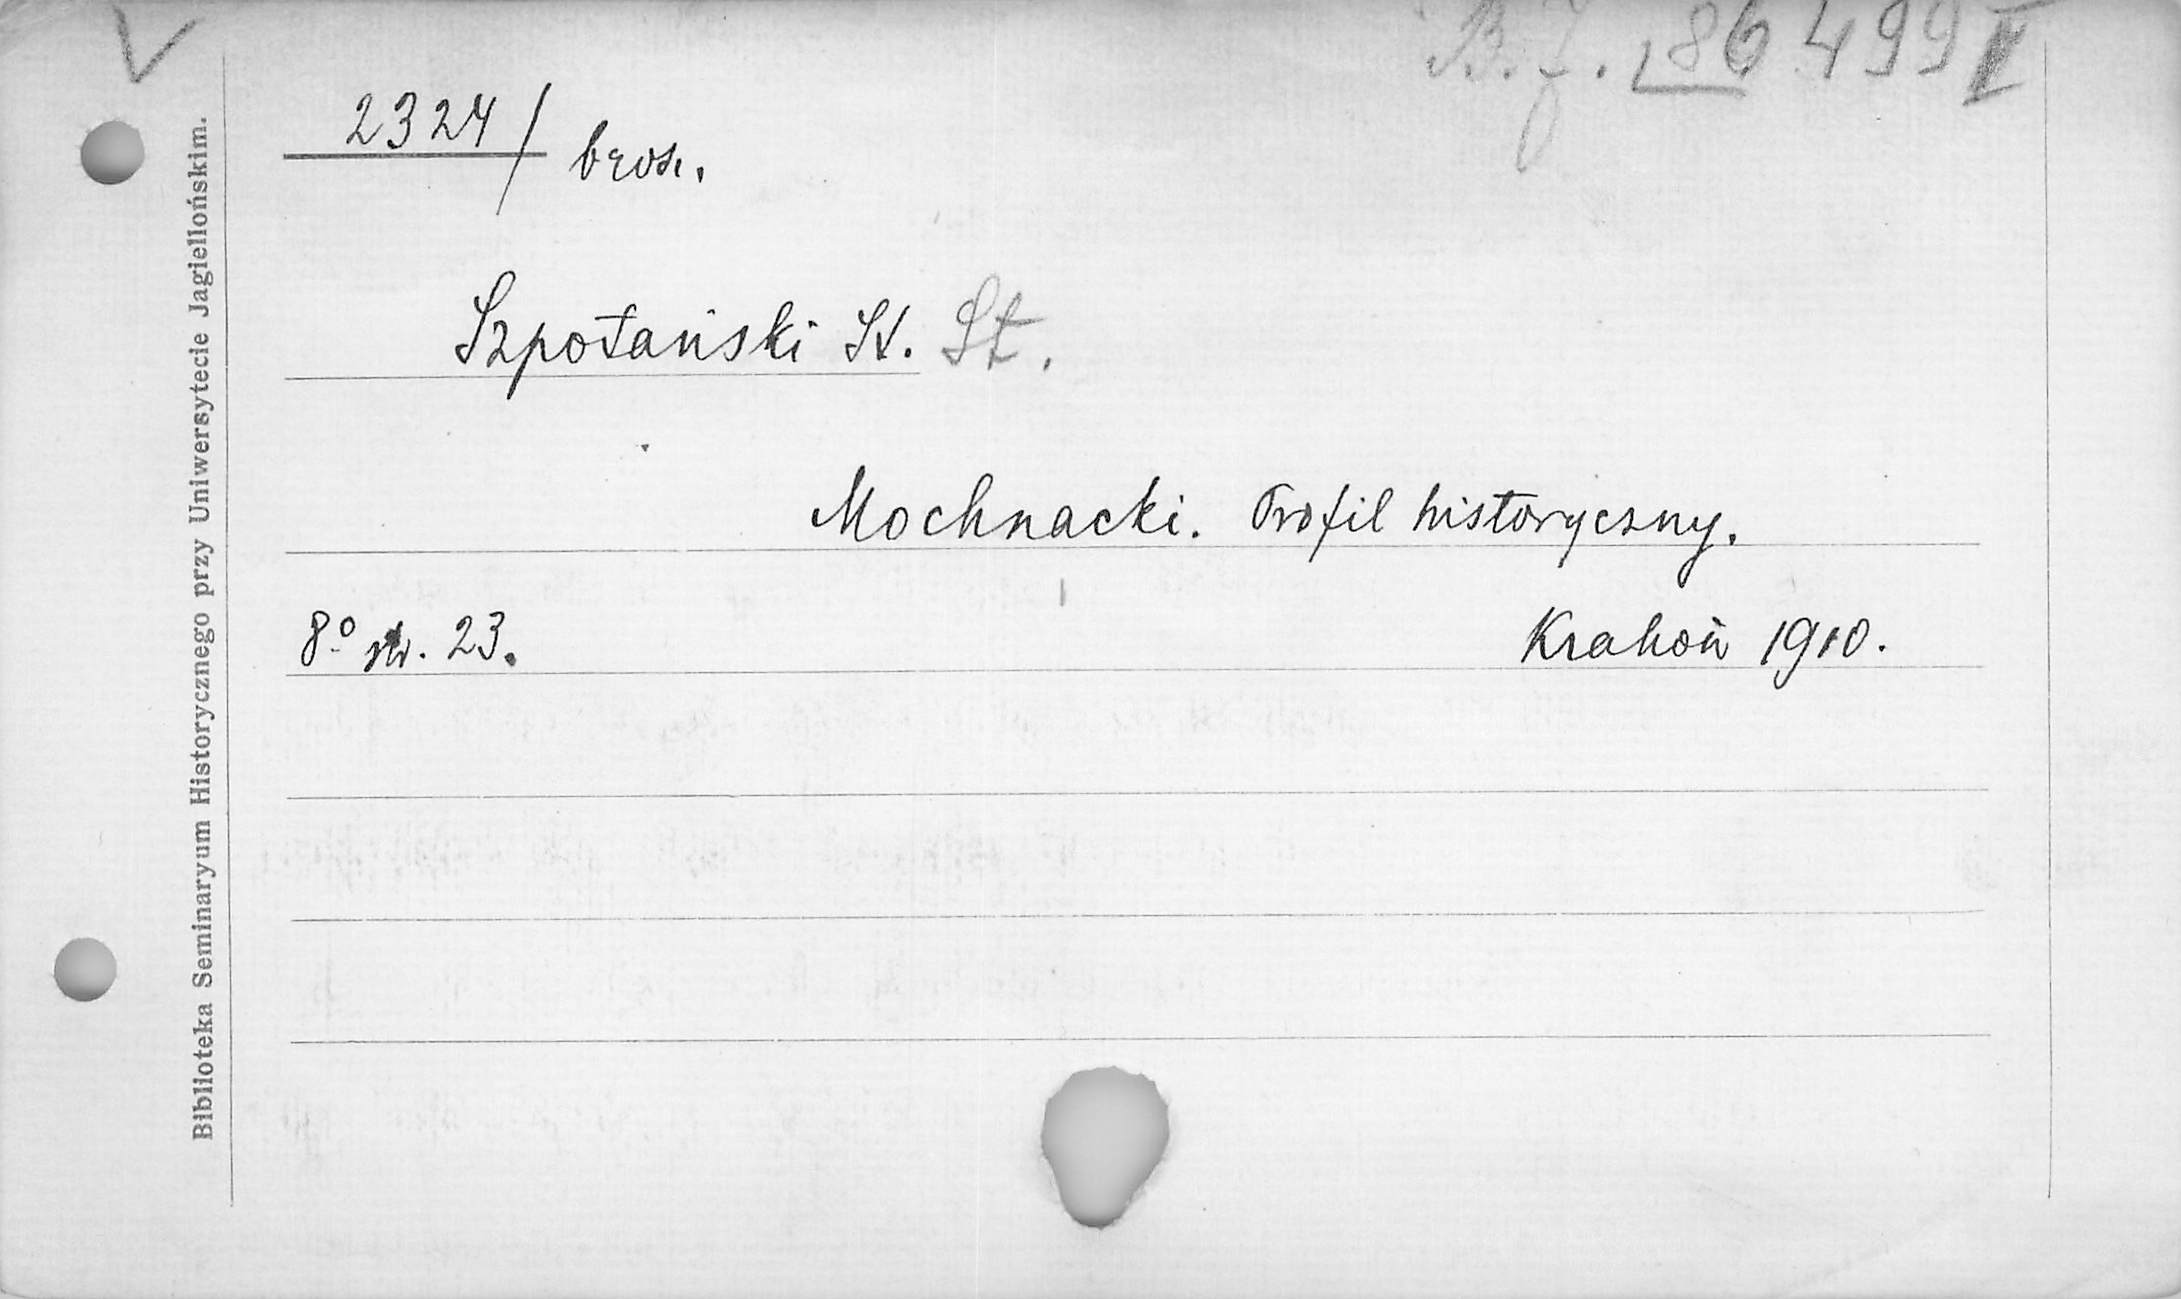 B.J. 186 499 II
2324/ brosz.
Szpotański St. St.
Mochnacki. Profil historyczny.
8° str. 23. Kraków 1910.
Biblioteka Seminaryum Historycznego przy Uniwersytecie Jagiellońskim.